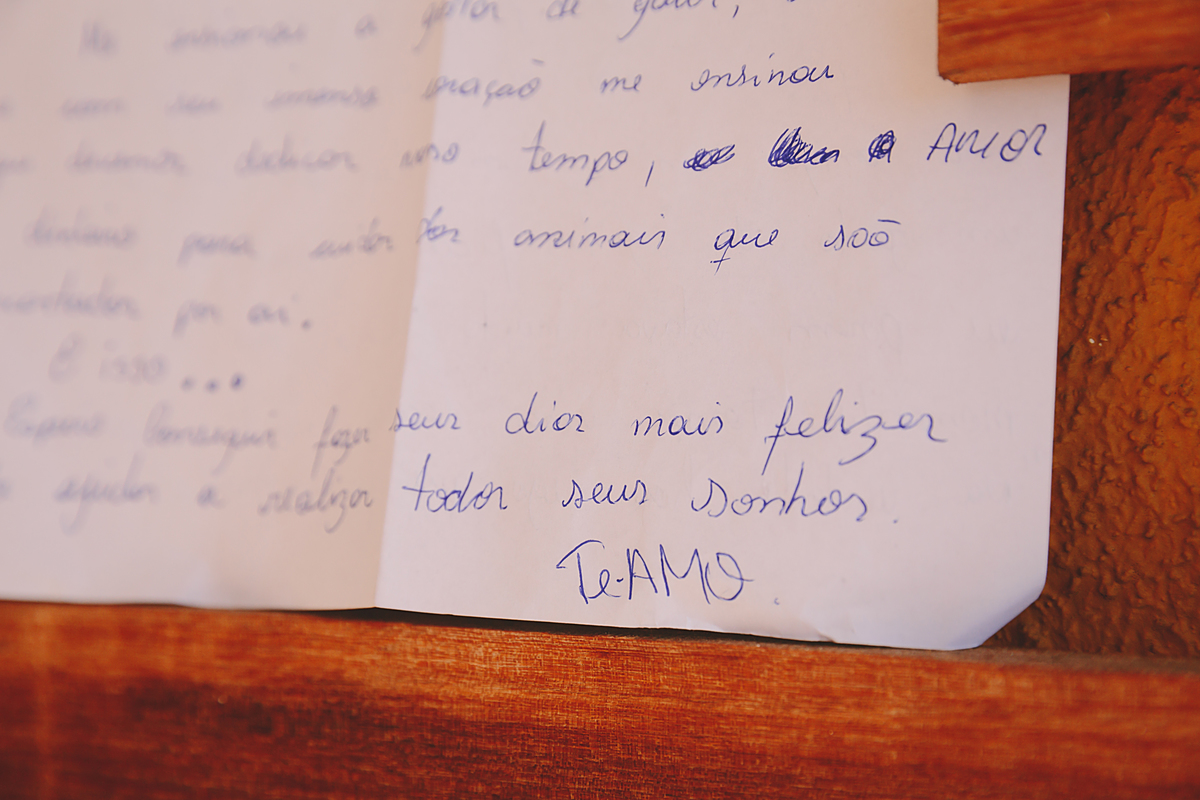 Me ensinou a gostar de gatos,
com seu imenso coração me ensinou
que devemos dedicar nosso tempo, AMOR
dinheiro para outros animais que são
por ai.
É isso...
Espero conseguir fazer seus dias mais felizes
ajudar a realizar todos seus sonhos.
Te-AMO.